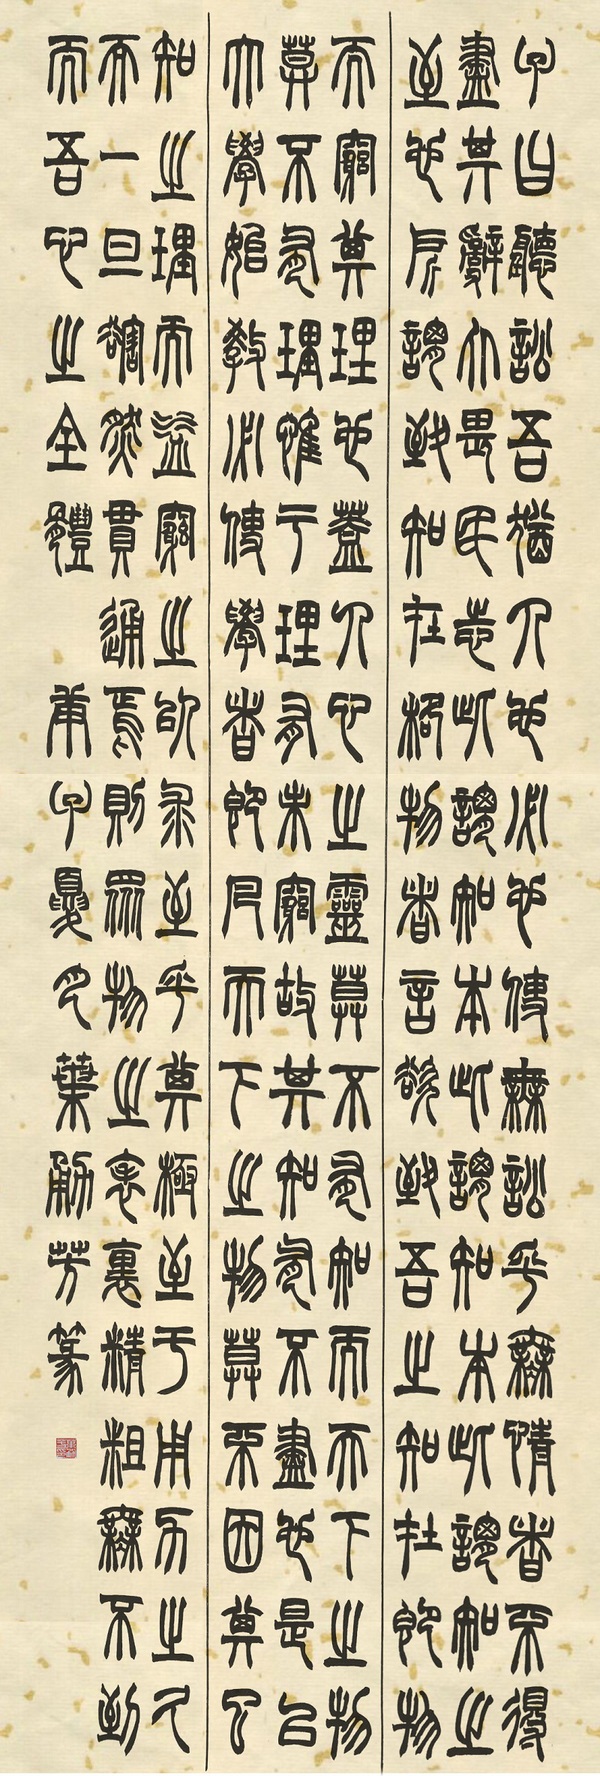 子曰聽訟吾猶人也必也使無訟乎無情者不得
盡其辭大畏民志此謂知本此謂知本此謂知之
至也所謂致知在格物者言欲致吾之知在即物
而窮其理也蓋人心之靈莫不有知而天下之物
莫不有理惟于理有未窮故其知有不盡也是以
大學始教必使學者即凡天下之物莫不因其已
知之理而益窮之以求至乎其極至于用力之久
而一旦豁然貫通焉則眾物之表裏精粗無不到
而吾心之全體 庚子夏月葉芳篆